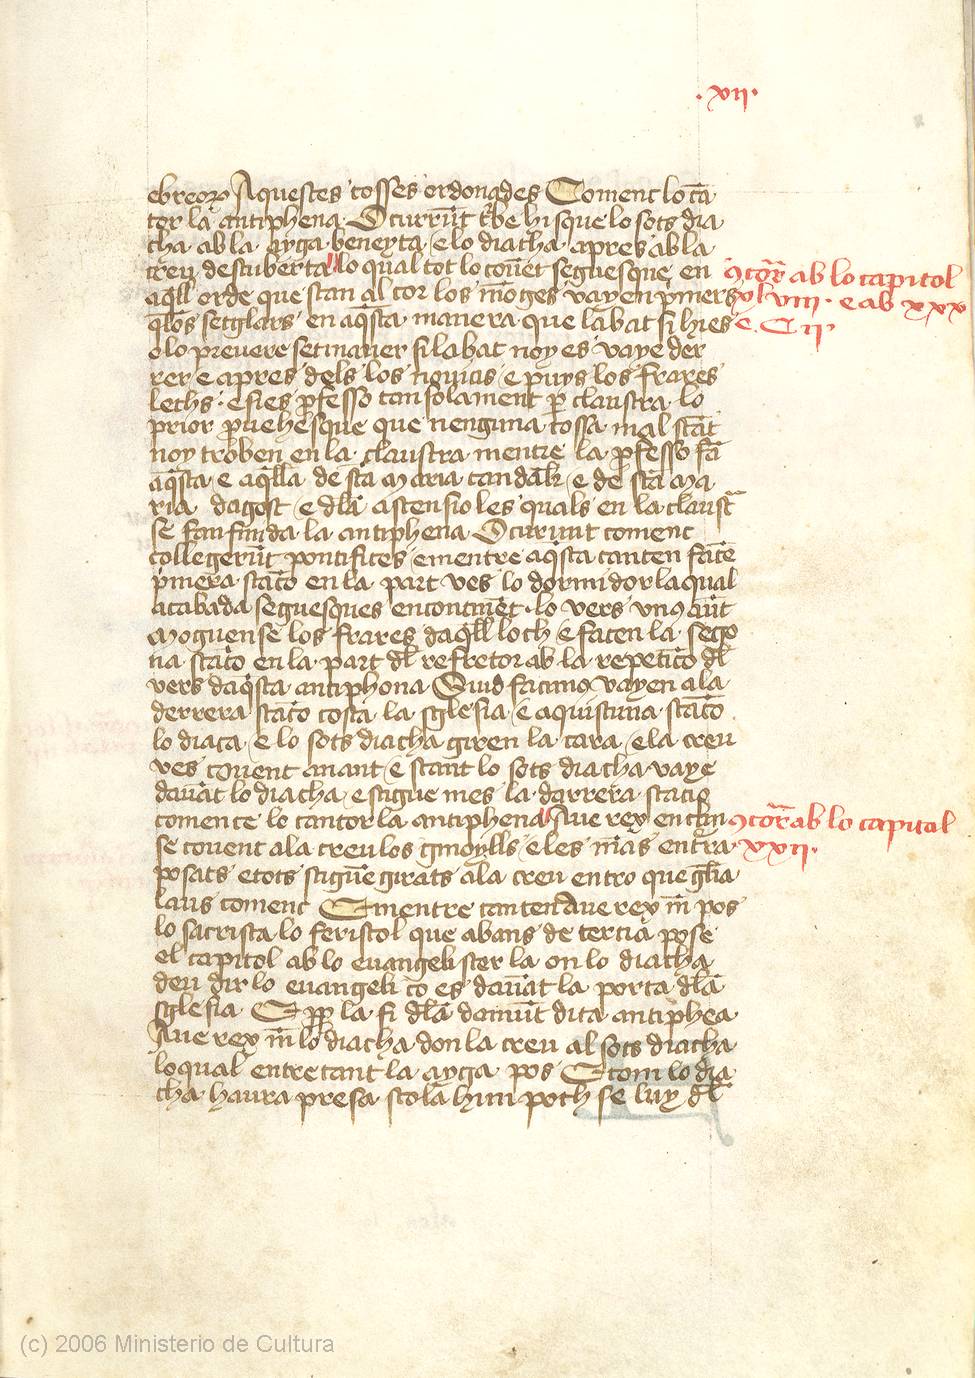 .xii.
ebreorꝫ Aquestes cosses ordonades Coment lo cā
tor la antiphena Ocurrūt t̄be hisque lo sots dia
cha ab la ayga beneyta e lo diacha apres ab la
creu descuberta lo qual tot lo couēt seguesque en
aq̄ll orde que stan al cor los mōges vayen pͥmers
q̄los setglars en aq̄sta manera que labat si hi es
o lo preuere setmaner si labat noy es vaye der
rer e apres dels los nouicis e puys los frares
lechs · e si es ꝓfesso tan solament ꝑ claustra lo
prior ꝓuehesque que nenguna cossa mal stāt
noy troben en la claustra mentre la ꝓfesso fā
aq̄sta e aq̄lla de stā maria candāl e de stā ma
ria dagost e dla astensio les quals en la claustᵃ
se fan finida la antiphena Ocurrunt coment
collegerūt pontifices e mentre aq̄sta canten facē
pͥmera stacō en la part ves lo dormidor la qual
acabada seguesques encontinēt lo vers vnꝰ aūt
moguense los frares daq̄ll loch e facen la sego
na stacō en la part dl refretor ab la repeticō dl
vers daq̄sta antiphona Quid facimꝰ vayen a la
derrera stacō costa la sglesia e aquistuna stacō
lo diaca e lo sots diacha giren la cara e la creu
ves couent anant e stant lo sots diacha vaye
dauāt lo diacha e stigue mes la darrera stacio
comence lo cantor la antiphena Aue rex en clin
se couent a la creu los gmoylls e les mās en t̄ra
posats e tots stiguē girats a la creu entro que glia
laus coment E mentre canten Aue rex m̄ pos
lo sacrista lo feristol que abans de tercia pose
el capitol ab lo euangelister la on lo diacha
deu dir lo euangeli co es dauāt la porta dla
sglesia E ꝓp la fi dla damūt dita antiphea
Aue rex m̄ lo diacha don la creu al sots diacha
lo qual entretant la ayga pos E com lo dia
cha haura presa stola hun poch se luy dl
ꝯcor̄ ab lo capitol
xlviii · e ab xxx
e · C ii ·
ꝯcor̄ ab lo capitol
xxii ·
(c) 2006 Ministerio de Cultura